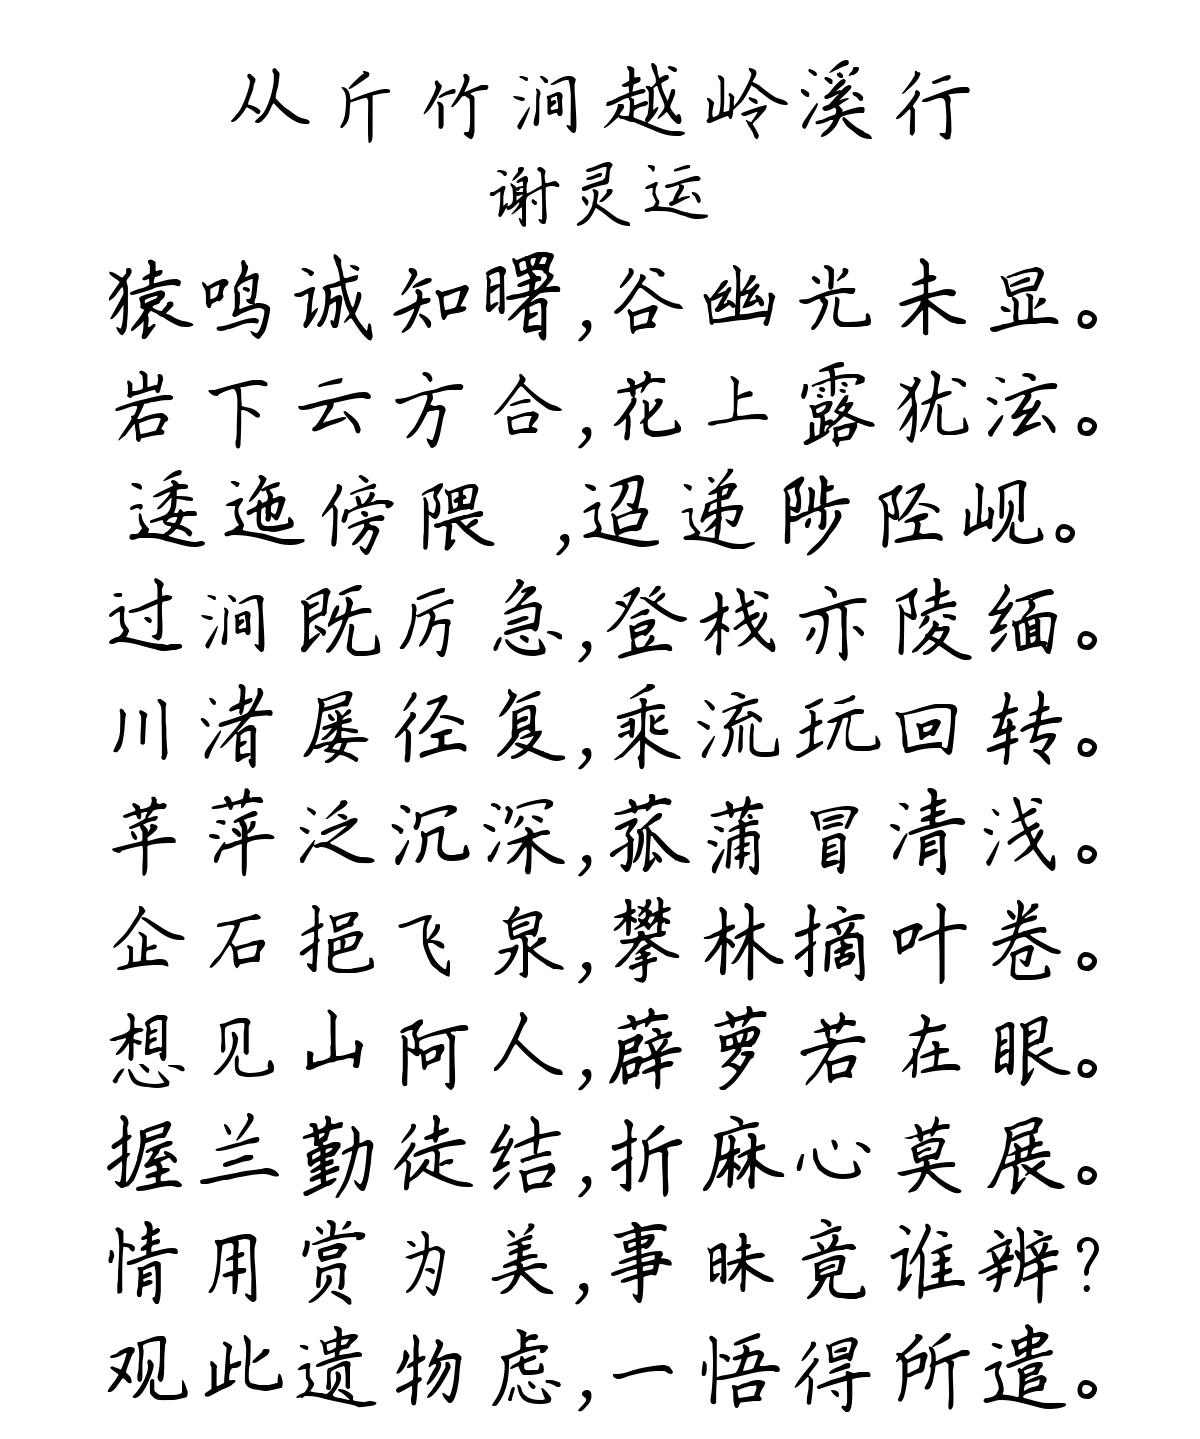 从斤竹涧越岭溪行
谢灵运
猿鸣诚知曙,谷幽光未显。
岩下云方合,花上露犹泫。
逶迤傍隈 ,迢递陟陉岘。
过涧既厉急,登栈亦陵缅。
川渚屡径复,乘流玩回转。
苹萍泛沉深,菰蒲冒清浅。
企石挹飞泉,攀林摘叶卷。
想见山阿人,薜萝若在眼。
握兰勤徒结,折麻心莫展。
情用赏为美,事昧竟谁辨?
观此遗物虑,一悟得所遣。